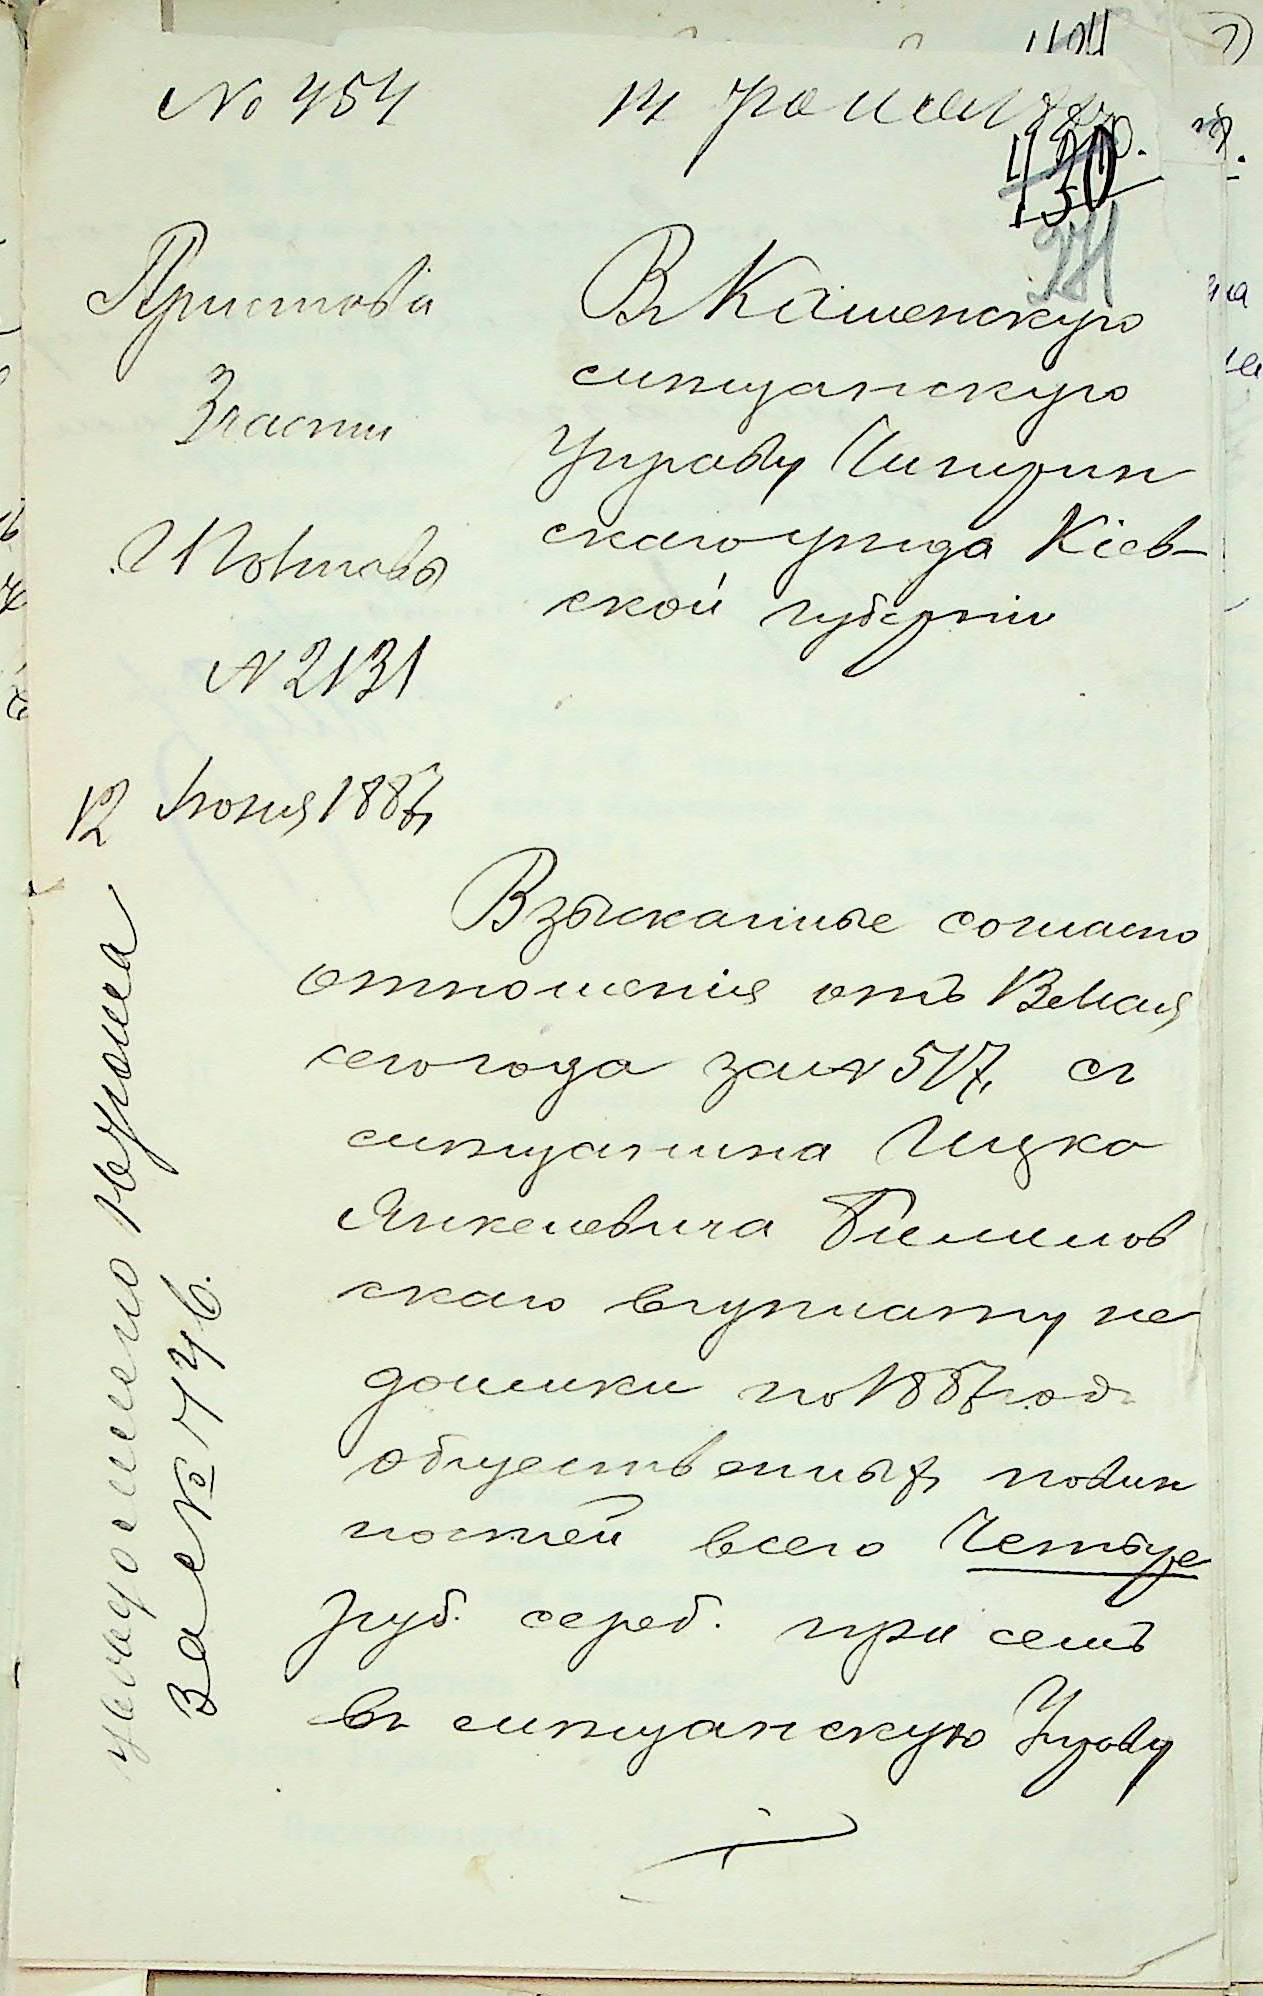 № 454
430
271
Пристава
3 части
№ 2131
12 Іюня 1887 г.
Въ Каменскую
мѣщанскую
Управу Чигирин
скаго уѣзда Кіев-
ской губерніи
Взысканные согласно
отношенія отъ 13 Мая
сего года за № 517, съ
мѣщанина Ицко
Янкелевича
скаго въ уплату не
доимки по 1887 годъ
общественныхъ повин
ностей всего Четыре
руб. сереб. при семъ
въ мѣщанскую Управу
за №